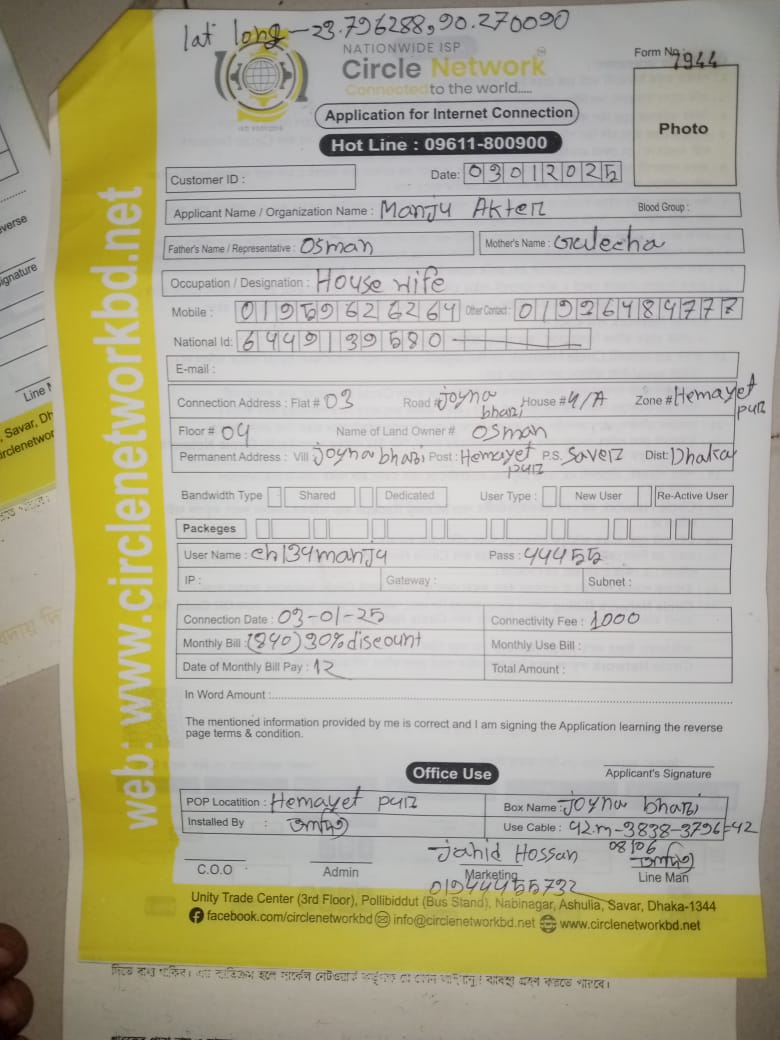 lat long - 23.796288, 90.270090
NATIONWIDE ISP
Circle Network
Connected to the world.....
Form No : 7944
Application for Internet Connection
Photo
Hot Line : 09611-800900
Customer ID :
Date: 03012025
Applicant Name / Organization Name : Manju Akter Blood Group :
Father's Name / Representative : Osman Mother's Name : Gulecha
Occupation / Designation : House wife
Mobile : 01959626264 Other Contact : 01926484777
National Id: 6449139580
E-mail :
Connection Address : Flat # 03 Road # Joyna bhari House # 4/A Zone # Hemayet pur
Floor # 04 Name of Land Owner # Osman
Permanent Address : Vill Joyna bhari Post : Hemayet pur P.S. Saver Dist: Dhaka
Bandwidth Type Shared Dedicated User Type : New User Re-Active User
Packeges
User Name : ch134manju Pass : 44455
IP : Gateway : Subnet :
Connection Date : 03-01-25 Connectivity Fee : 1000
Monthly Bill : (840) 30% discount Monthly Use Bill :
Date of Monthly Bill Pay : 12 Total Amount :
In Word Amount :
The mentioned information provided by me is correct and I am signing the Application learning the reverse
page terms & condition.
Office Use
Applicant's Signature
POP Locatition : Hemayet pur Box Name : Joyna bhari
Installed By : Use Cable : 42.m-3838-3796=42
Jahid Hossan 08106
C.O.O Admin Marketing Line Man
01944455732
Unity Trade Center (3rd Floor), Pollibiddut (Bus Stand), Nabinagar, Ashulia, Savar, Dhaka-1344
facebook.com/circlenetworkbd info@circlenetworkbd.net www.circlenetworkbd.net
web: www.circlenetworkbd.net
everse
ignature
, Savar, Dh